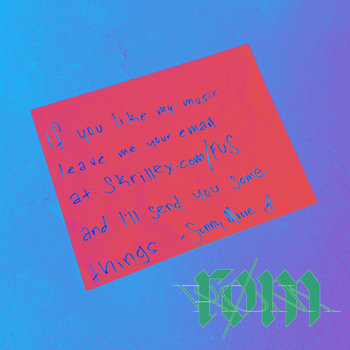 If you like my music
leave me your email
at: skrillex.com/FUS
and I'll send you some
things - Sonny Moore